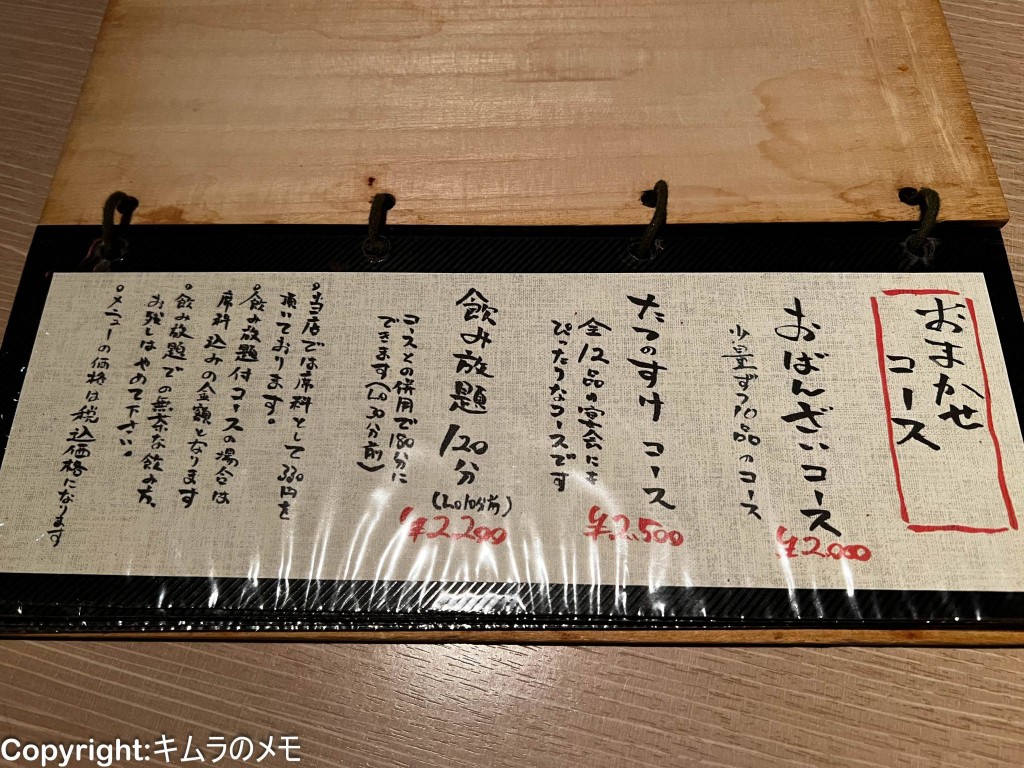 おまかせ
コース
おばんざいコース
少量ずつ10品のコース
¥2,000
たつのすけ コース
全12品の宴会にも
ぴったりなコースです
¥2,500
飲み放題 120分
(L.O 10分前)
¥2,200
コースとの併用で180分に
できます(L.O 30分前)
・当店では席料として330円を
頂いております。
・飲み放題付コースの場合は
席料込みの金額となります
・飲み放題での無茶な飲み方、
お残しはやめて下さい。
・メニューの価格は税込価格になります
Copyright:キムラのメモ